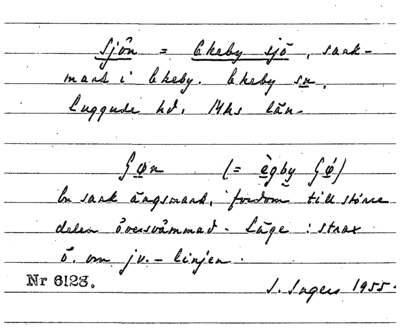 Sjön = Ekeby sjö, sank-
mark i Ekeby. Ekeby sn,
Luggude hd. Mhs län.
ʃøn (= ègby ʃǿ)
En sank ängsmark, fordom till större
delen översvämmad. Läge: strax
ö. om jv.-linjen.
Nr 6123.
I. Ingers 1955.